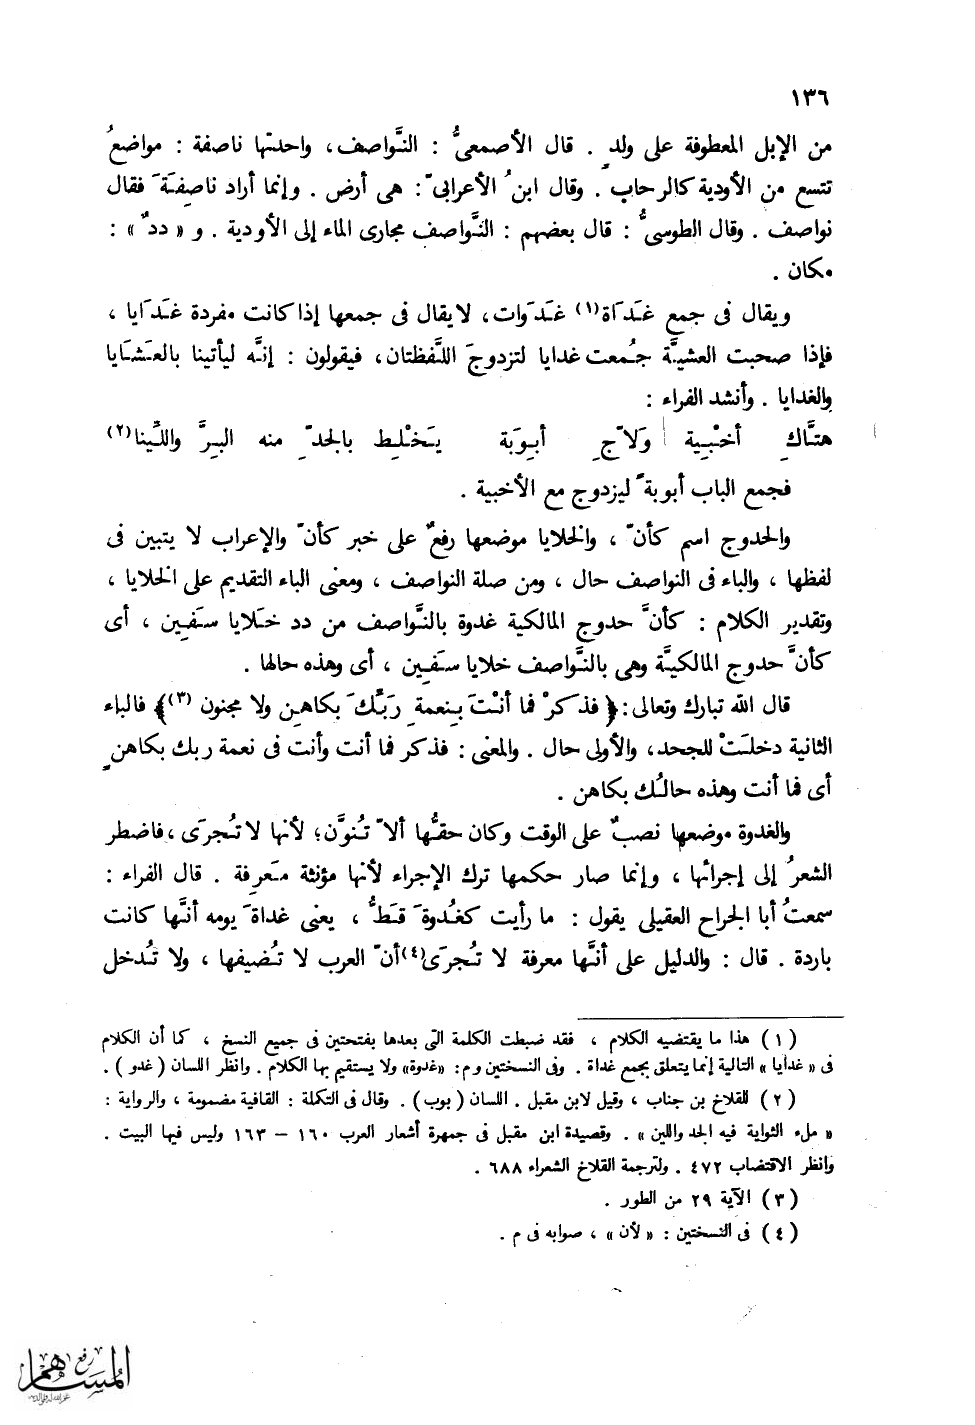 ١٣٦
من الإبل المعطوفة على ولدٍ . قال الأصمعىُّ : النَّواصف، واحدتها ناصفة : مواضعُ
تتسع من الأودية كالرحاب . وقال ابنُ الأعرابىّ : هى أرض . وإنما أراد ناصِفَةَ فقال
نواصف . وقال الطوسىُّ : قال بعضهم : النَّواصف مجارى الماء إلى الأودية . و « ددٌ » :
مكان .
ويقال فى جمع غَدَاة(١) غَدَوات، لا يقال فى جمعها إذا كانت مفردة غَدَايا ،
فإذا صحبت العشيَّة جُمعت غدايا لتزدوجَ اللَّفظتان، فيقولون : إنَّه ليأتينا بالعَشَايا
والغدايا . وأنشد الفراء :
هتَّاكِ أخْبِية وَلاّجِ أبوِبَة يَخْلِط بالجدّ منه البرَّ واللِّينا(٢)
فجمع الباب أبوبةً ليزدوج مع الأخبية .
والحدوج اسم كأنّ ، والخلايا موضعها رفعٌ على خبر كأنّ والإعراب لا يتبين فى
لفظها ، والباء فى النواصف حال ، ومن صلة النواصف ، ومعنى الباء التقديم على الخلايا ،
وتقدير الكلام : كأنَّ حدوج المالكية غدوة بالنَّواصف من دد خَلايا سَفِين ، أى
كأنَّ حدوج المالكيَّة وهى بالنَّواصف خلايا سَفِين ، أى وهذه حالها .
قال الله تبارك وتعالى : ﴿ فذكرْ فما أنْتَ بِنعمةِ رَبِّكَ بكاهِنٍ ولا مجنون (٣)﴾ فالباء
الثانية دخلَتْ للجحد، والأولى حال . والمعنى : فذكر فما أنت وأنت فى نعمة ربك بكاهنٍ
أى فما أنت وهذه حالُك بكاهن .
والغدوة موضعها نصبٌ على الوقت وكان حقُّها ألاّ تُنوَّن؛ لأنها لا تُجرَى ، فاضطر
الشعرُ إلى إجرائها ، وإنما صار حكمها ترك الإجراء لأنها مؤنثة مَعرِفة . قال الفراء :
سمعتُ أبا الجراح العقيلى يقول : ما رأيت كغُدوةَ قَطُّ ، يعنى غداةَ يومه أنَّها كانت
باردة . قال : والدليل على أنَّها معرفة لا تُجرَى(٤) أنّ العرب لا تُضيفها ، ولا تُدخل
(١) هذا ما يقتضيه الكلام ، فقد ضبطت الكلمة التى بعدها بفتحتين فى جميع النسخ ، كما أن الكلام
فى « غدايا » التالية إنما يتعلق بجمع غداة . وفى النسختين وم : «غدوة» ولا يستقيم بها الكلام . وانظر اللسان (غدو) .
(٢) للقلاخ بن جناب ، وقيل لابن مقبل . اللسان (بوب) . وقال فى التكلة : القافية مضمومة ، والرواية :
« ملء الثواية فيه الجد واللين » . وقصيدة ابن مقبل فى جمهرة أشعار العرب ١٦٠ – ١٦٣ وليس فيها البيت .
وانظر الاقتضاب ٤٧٢ . ولترجمة القلاخ الشعراء ٦٨٨ .
(٣) الآية ٢٩ من الطور .
(٤) فى النسختين : « لأن » ، صوابه فى م .
رفع
المساهم